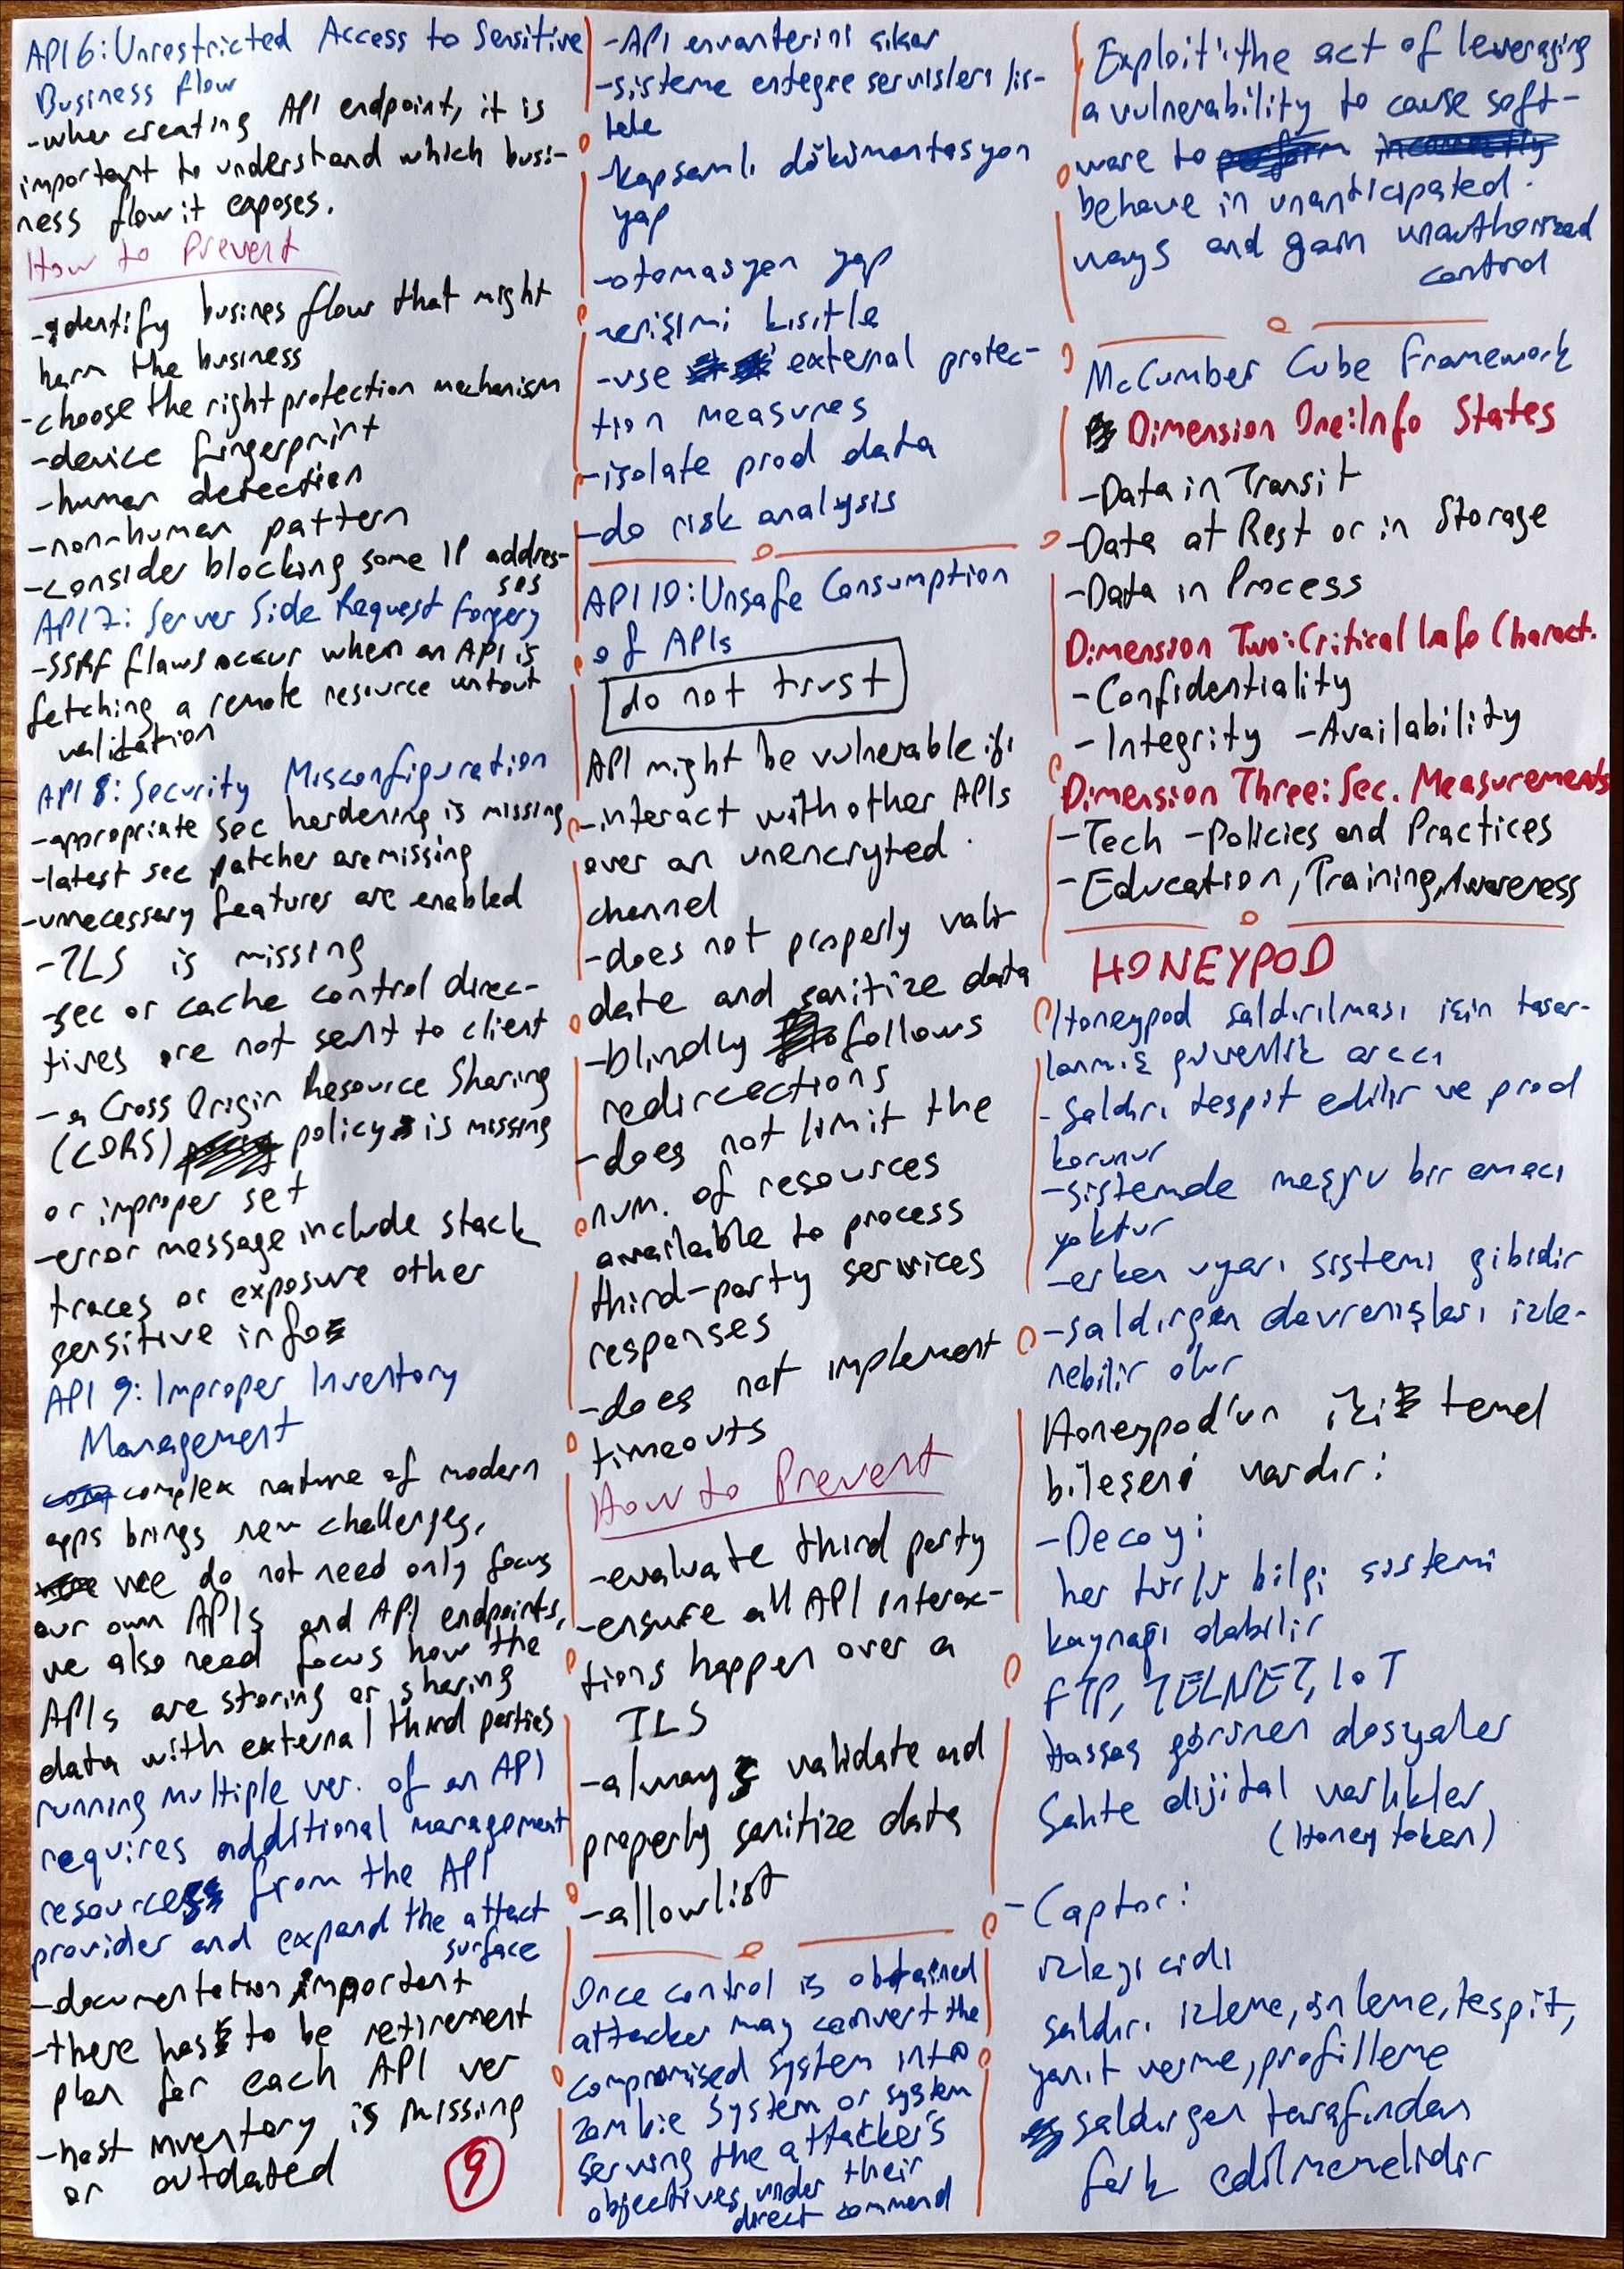 API 6: Unrestricted Access to Sensitive
Business flow
-when creating API endpoint, it is
important to understand which busi-
ness flow it exposes.
How to Prevent
-identify busines flow that might
harm the business
-choose the right protection mechanism
-device fingerprint
-human detection
-non-human pattern
-consider blocking some IP addres-
ses
API 7: Server Side Request Forgery
-SSRF flaws occur when an API is
fetching a remote resource witout
validation
API 8: Security Misconfiguration
-appropriate sec hardening is missing
-latest sec patches are missing
-unnecessary features are enabled
-TLS is missing
-sec or cache control direc-
tives are not sent to client
-a Cross Origin Resource Sharing
(CORS) policy is missing
or improper set
-error message include stack
traces or exposure other
sensitive info
API 9: Improper Inventory
Management
complex nature of modern
apps brings new challenges,
we do not need only focus
our own APIs and API endpoints,
we also need focus how the
APIs are storing or sharing
data with external third parties
running multiple ver. of an API
requires additional management
resources from the API
provider and expand the attact
surface
-documentation important
-there has to be retirement
plan for each API ver
-host inventory is missing
or outdated
9
-API envanterini çıkar
-sisteme entegre servisleri lis-
tele
-kapsamlı dökümantasyon
yap
-otomasyon yap
-erişimi kısıtla
-use external protec-
tion measures
-isolate prod data
-do risk analysis
API 10: Unsafe Consumption
of APIs
do not trust
API might be vulnerable if:
-interact with other APIs
over an unencryted
channel
-does not properly vali-
date and sanitize data
-blindly follows
redircections
-does not limit the
num. of resources
available to process
third-party services
responses
-does not implement
timeouts
How to Prevent
-evaluate third party
-ensure all API interac-
tions happen over a
TLS
-always validate and
properly sanitize data
-allowlist
Once control is obtained
attacker may convert the
compromised system into
zombie system or system
serving the attacker's
objectives under their
direct command
Exploit: the act of leveraging
a vulnerability to cause soft-
ware to
behave in unanticipated
ways and gain unauthorized
control
McCumber Cube Framework
Dimension One: Info States
-Data in Transit
-Data at Rest or in Storage
-Data in Process
Dimension Two: Critical Info Charact.
-Confidentiality
-Integrity -Availability
Dimension Three: Sec. Measurements
-Tech -Policies and Practices
-Education, Training, Awareness
HONEYPOD
Honeypod saldırılması için tasar-
lanmış güvenlik aracı
-Saldırı tespit edilir ve prod
korunur
-sistemde meşru bir amacı
yoktur
-erken uyarı sistemi gibidir
-saldırgan davranışları izle-
nebilir olur
Honeypod'un iki temel
bileşeni vardır:
-Decoy:
her türlü bilgi sistemi
kaynağı olabilir
FTP, TELNET, IoT
Hassas görünen dosyalar
Sahte dijital varlıklar
(Honey token)
-Captor:
izleyicidi
saldırı izleme, önleme, tespit,
yanıt verme, profilleme
saldırgan tarafından
fark edilmemelidir